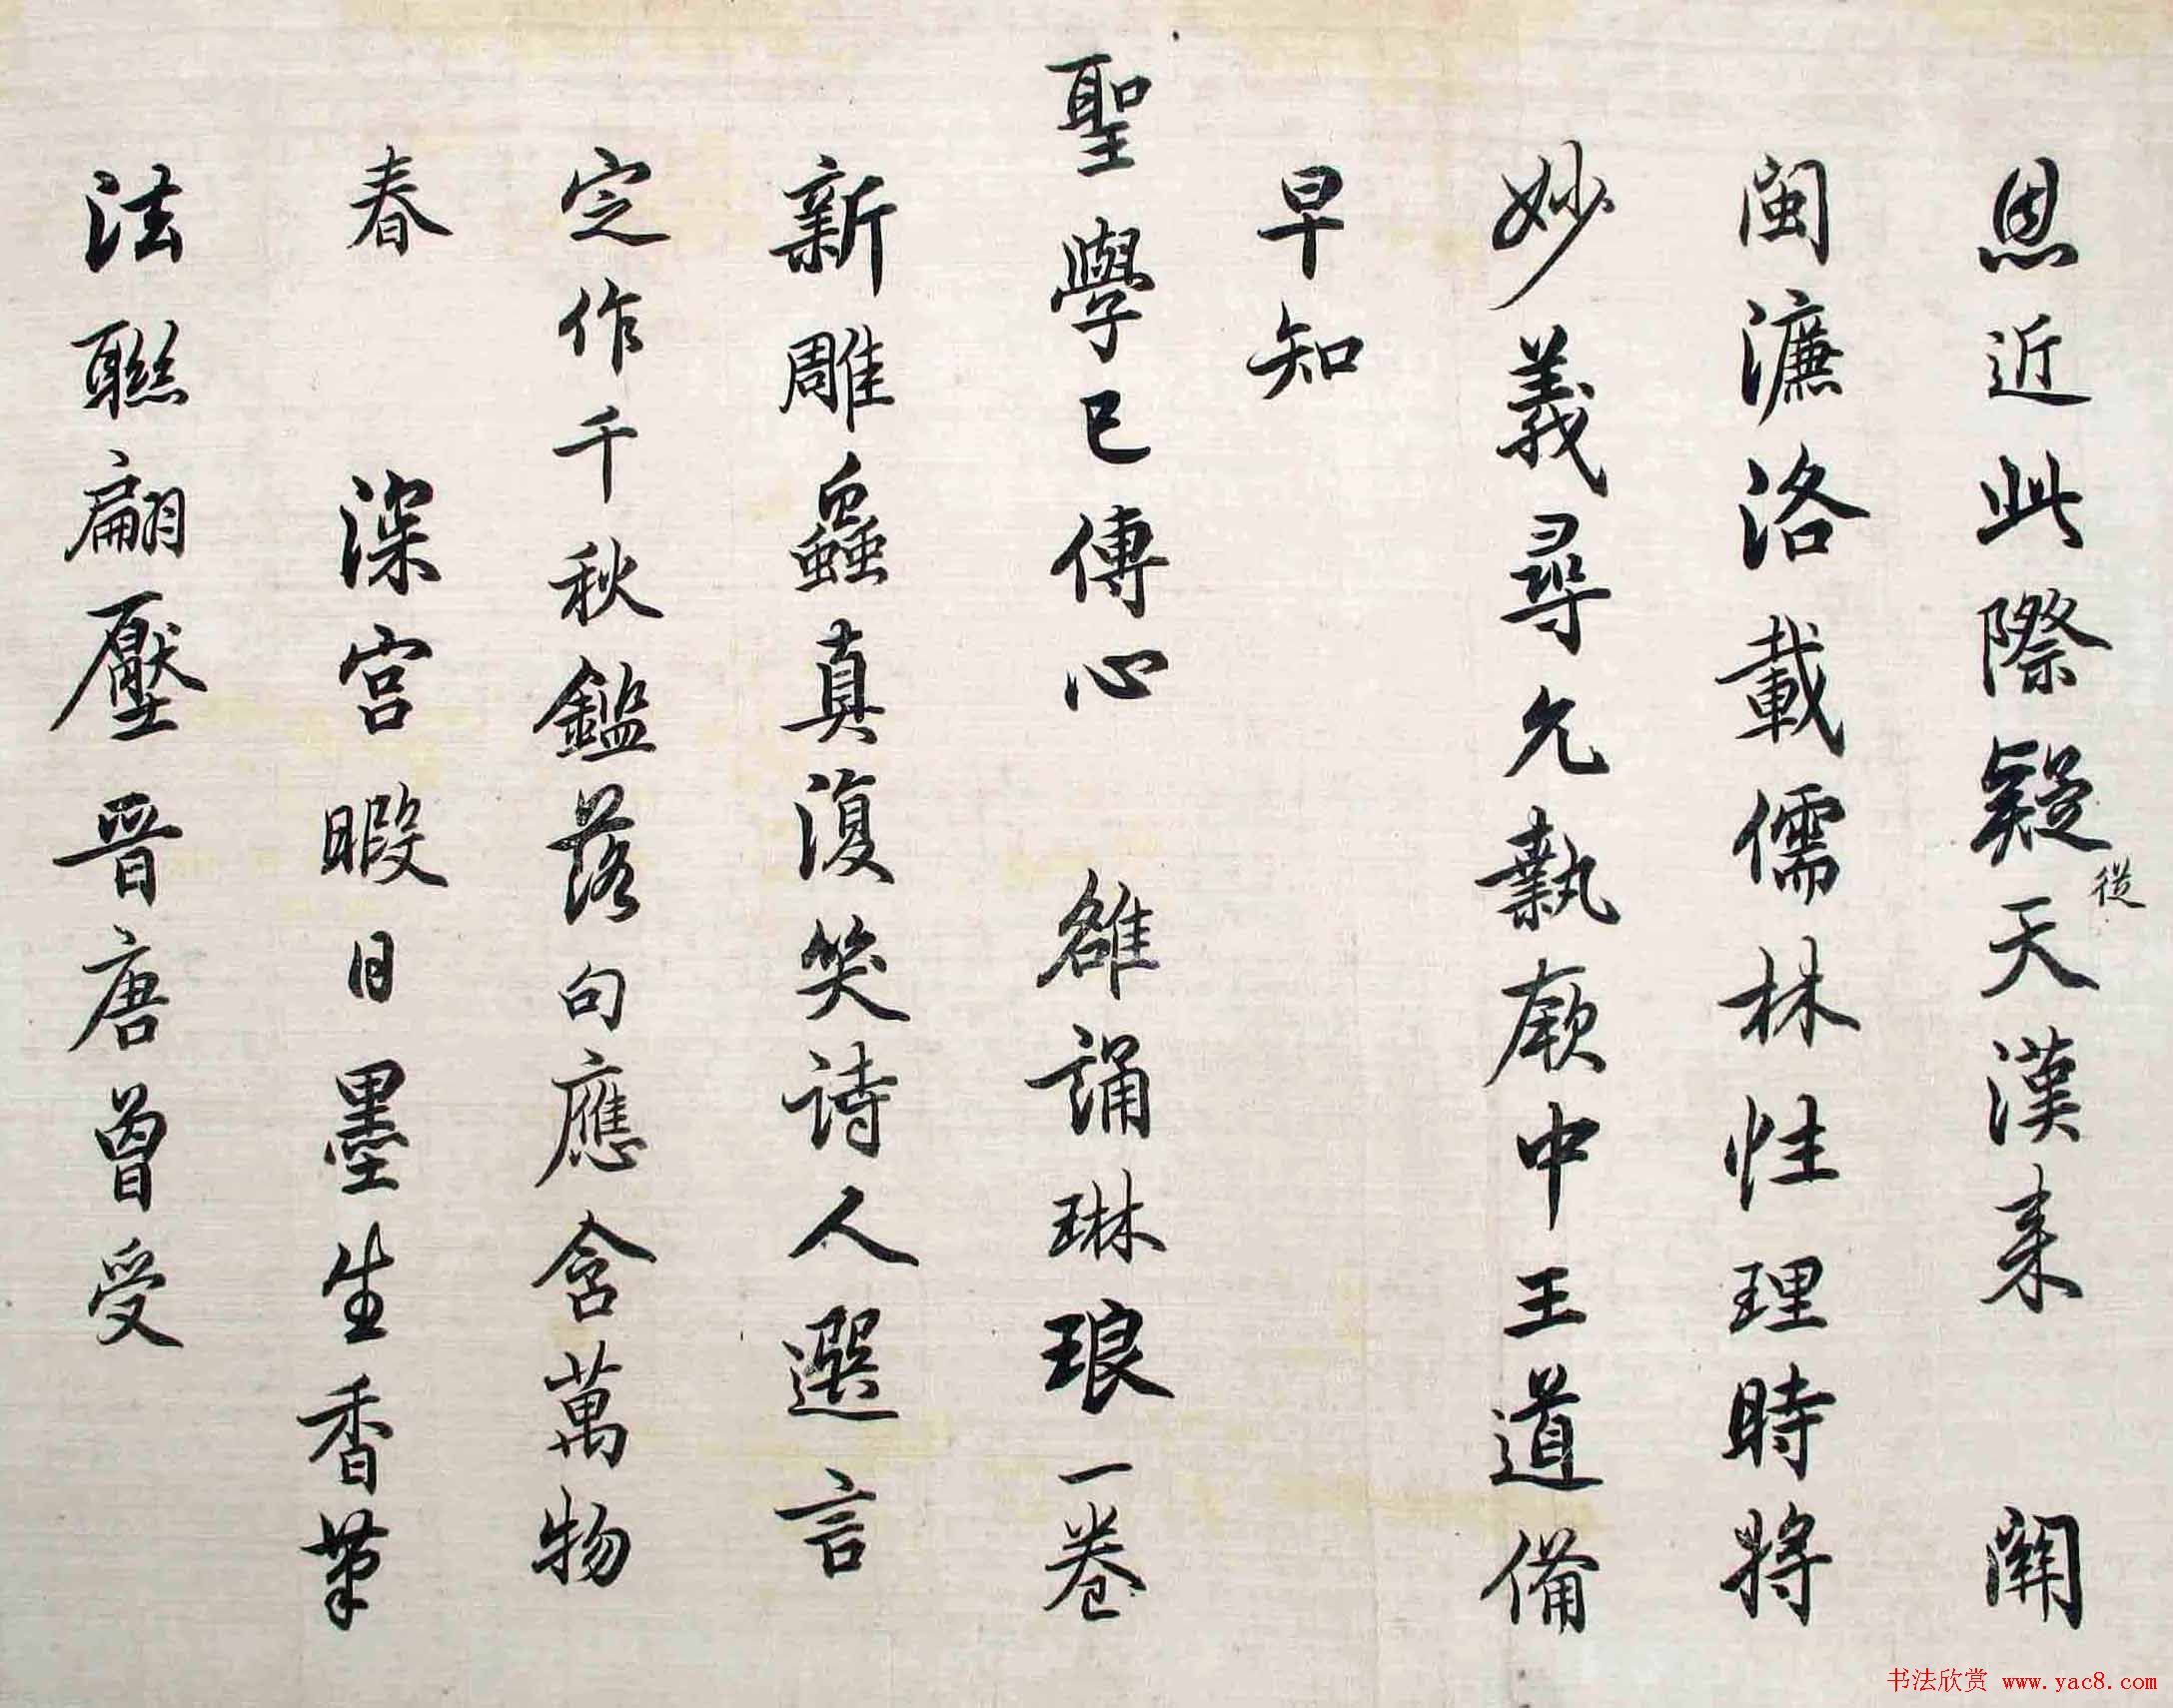 恩近此際疑從天漢來 関
閩濂洛載儒林性理時將
妙義尋允執厥中王道備
早知
聖學已傳心 雒誦琳琅一卷
新雕蟲真復笑詩人選言
定作千秋鑑落句應含萬物
春 深宮暇日墨生香筆
法聯翩壓晉唐曾受
书法欣赏 www.yac8.com